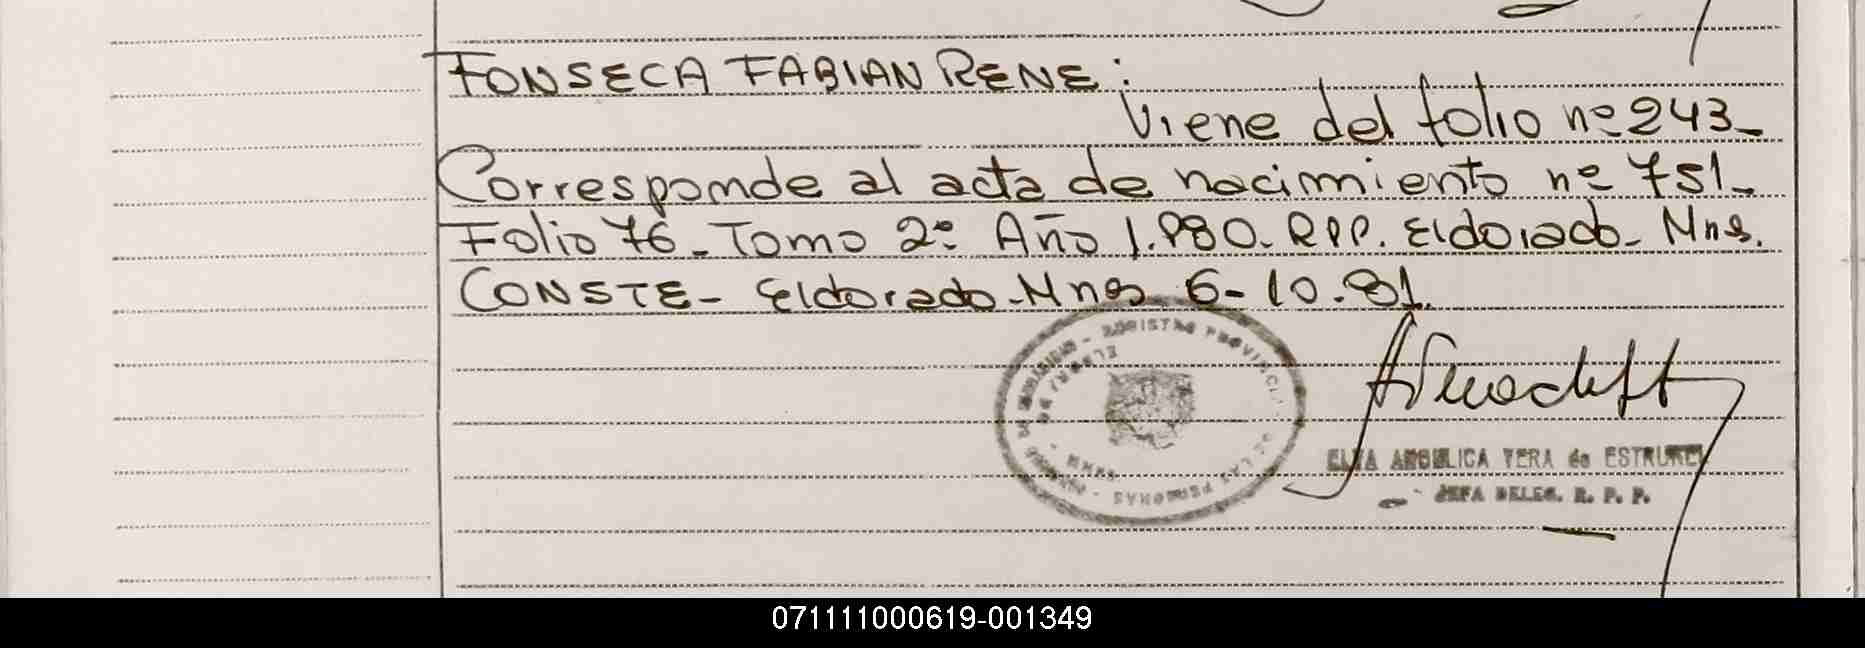 FONSECA FABIAN RENE:
Viene del folio nº 243_
Corresponde al acta de nacimiento nº 751_
Folio 76_ Tomo 2º Año 1.980. RPP. Eldorado_ Mns.
CONSTE_ Eldorado_Mnes 6-10.81.
REGISTRO PROVINCIAL DE LAS PERSONAS
ELVA ANGELICA VERA de ESTRUBEL
JEFA DELEG. R. P. P.
071111000619-001349